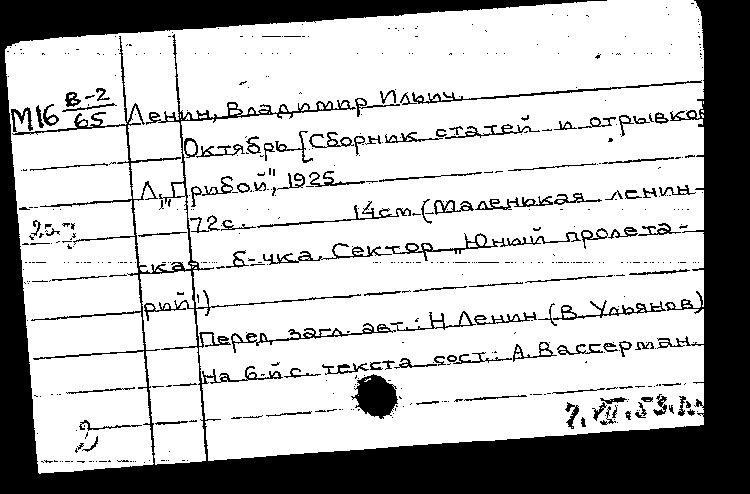 М16 В-2/65 Ленин, Владимир Ильич.
Октябрь [Сборник статей и отрывков]
Л, „Прибой", 1925.
72с. 14см. (Маленькая ленин-
ская б-чка. Сектор „Юный пролета-
рий")
Перед загл. авт.: Н Ленин (В. Ульянов)
На 6-й с. текста сост.: А. Вассерман.
7.VII.53.
2